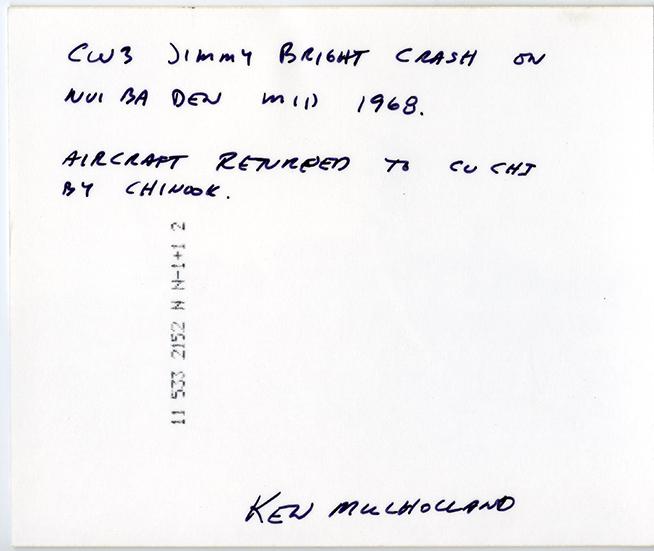 CW3 JIMMY BRIGHT CRASH ON
NUI BA DEN MID 1968.
AIRCRAFT RETURNED TO CU CHI
BY CHINOOK.
11 533 2152 N N-1+1 2
KEN MULHOLLAND